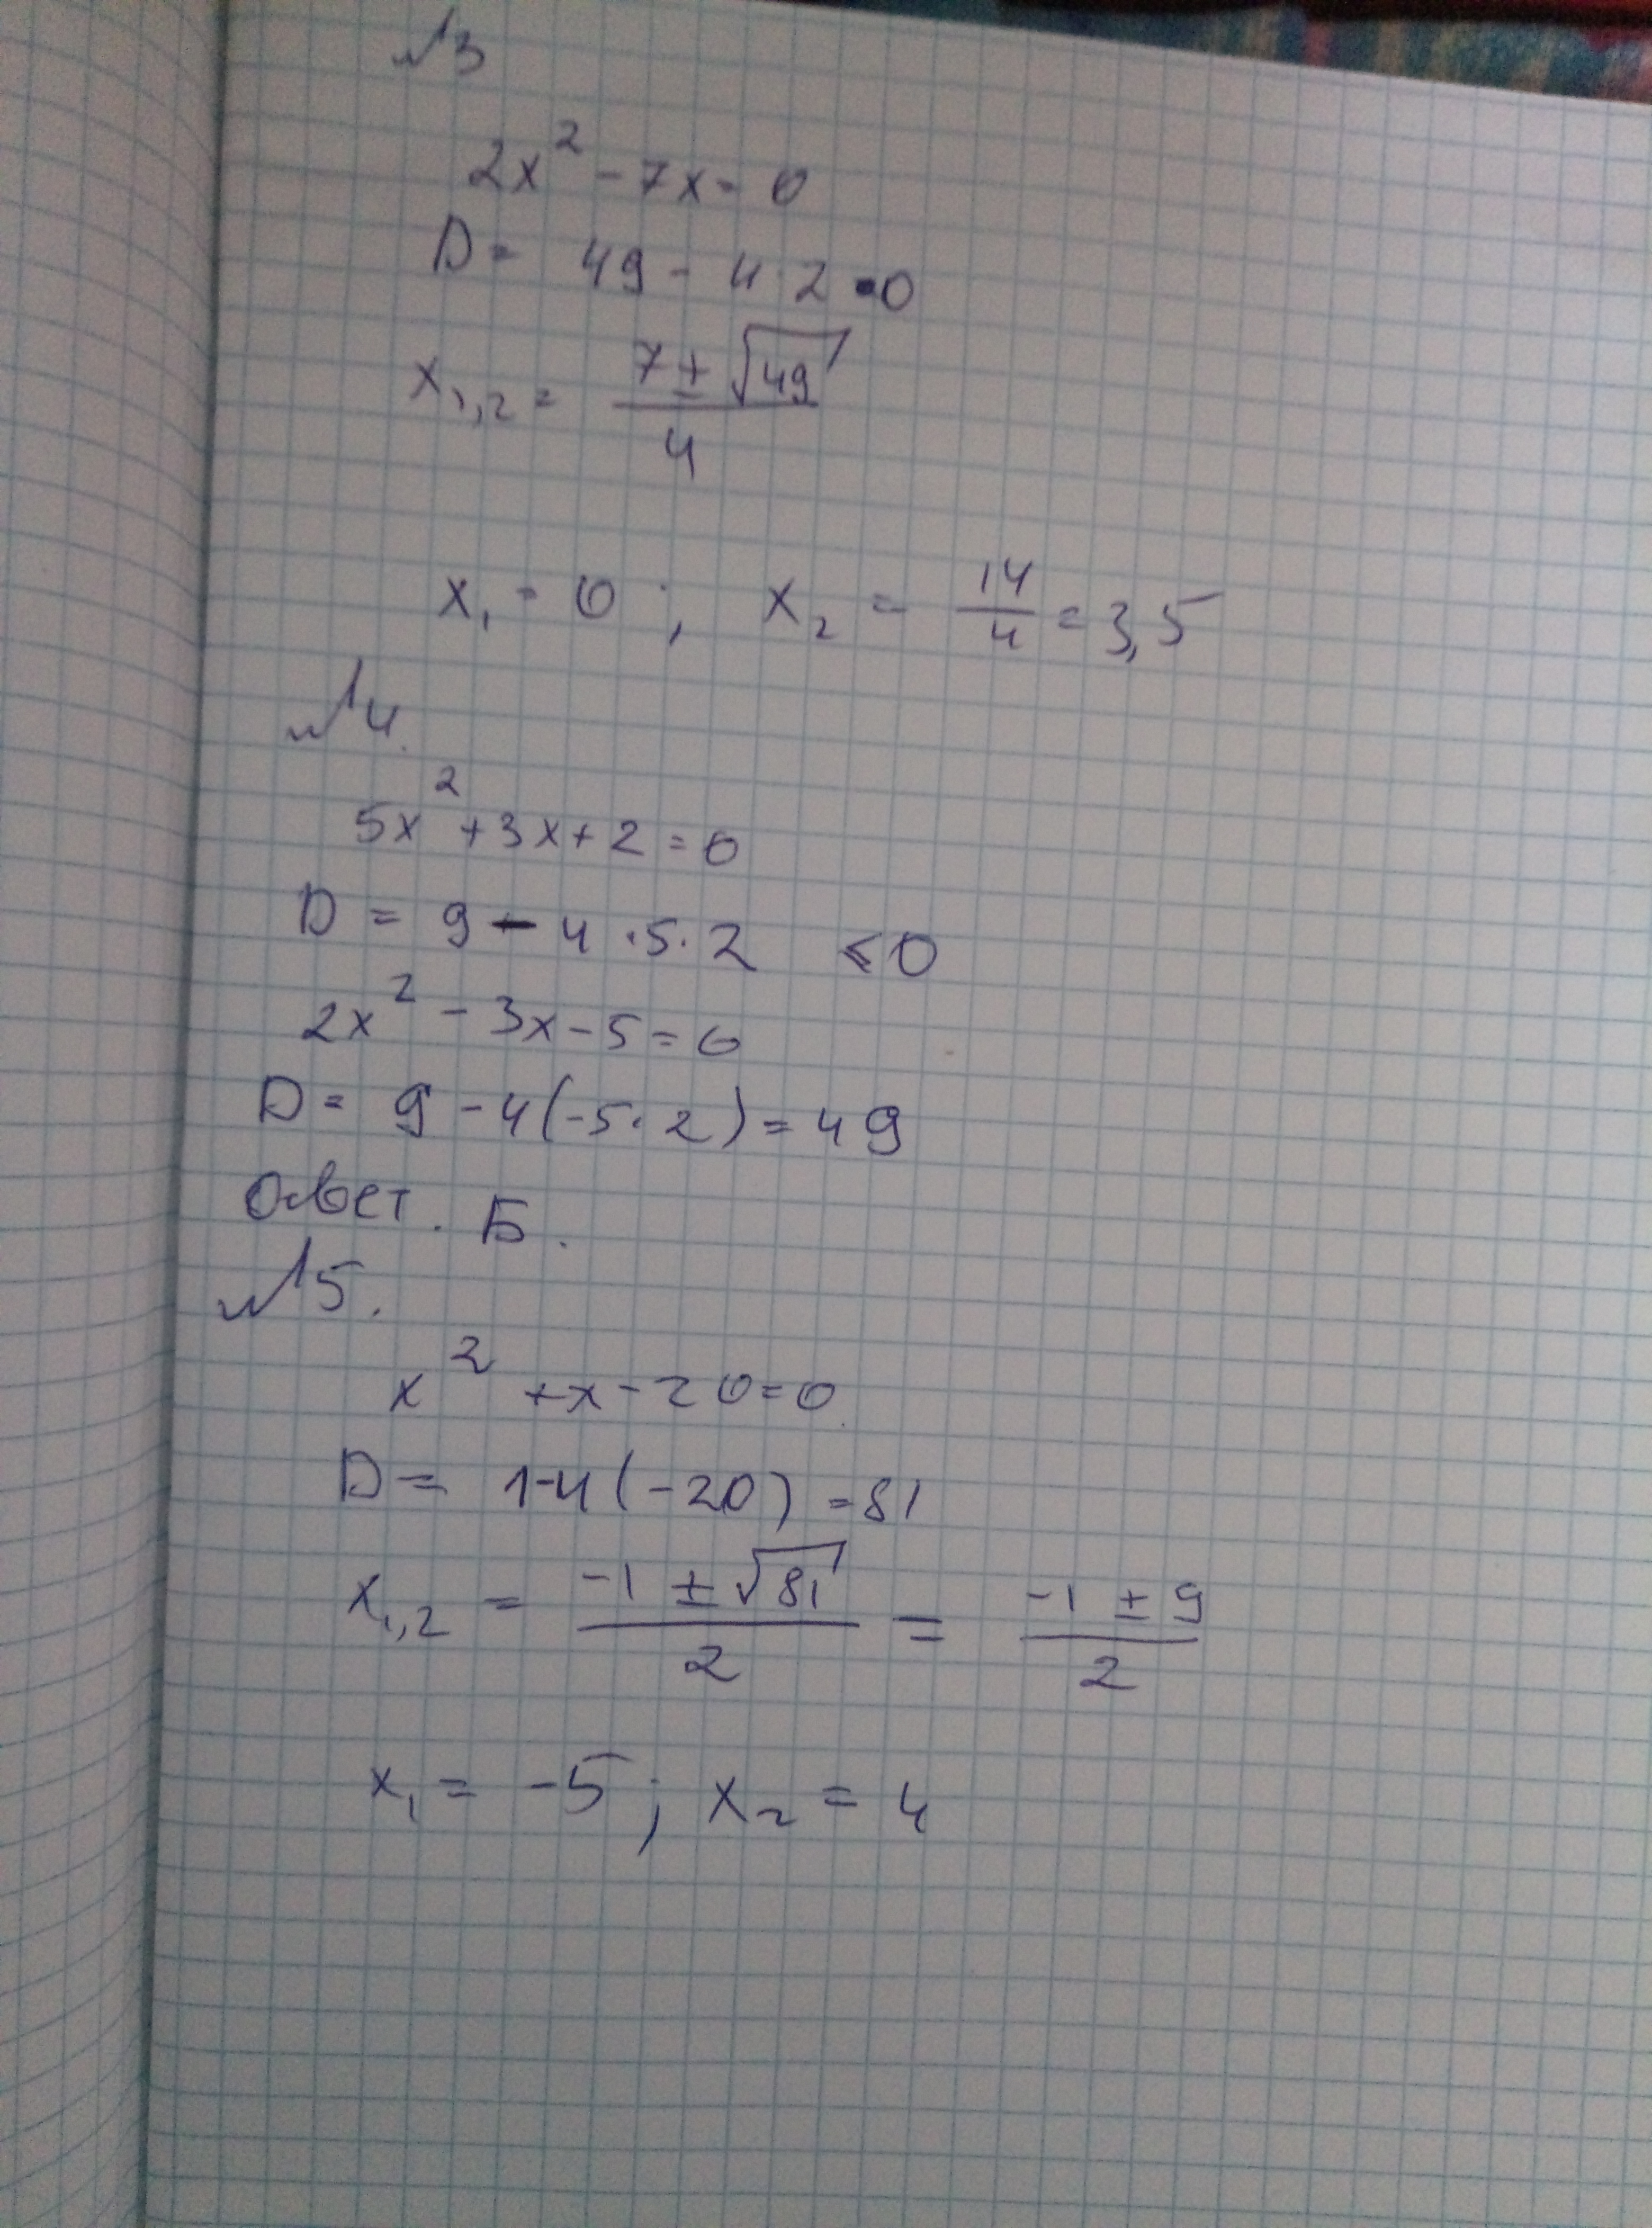 №3
2x² - 7x = 0
D = 49 - 4·2·0
x₁,₂ = (7 ± √49) / 4
x₁ = 0 ; x₂ = 14/4 = 3,5
№4.
5x² + 3x + 2 = 0
D = 9 - 4·5·2 < 0
2x² - 3x - 5 = 0
D = 9 - 4(-5·2) = 49
Ответ. Б.
№5.
x² + x - 20 = 0.
D = 1-4(-20) = 81
x₁,₂ = (-1 ± √81) / 2 = (-1 ± 9) / 2
x₁ = -5 ; x₂ = 4